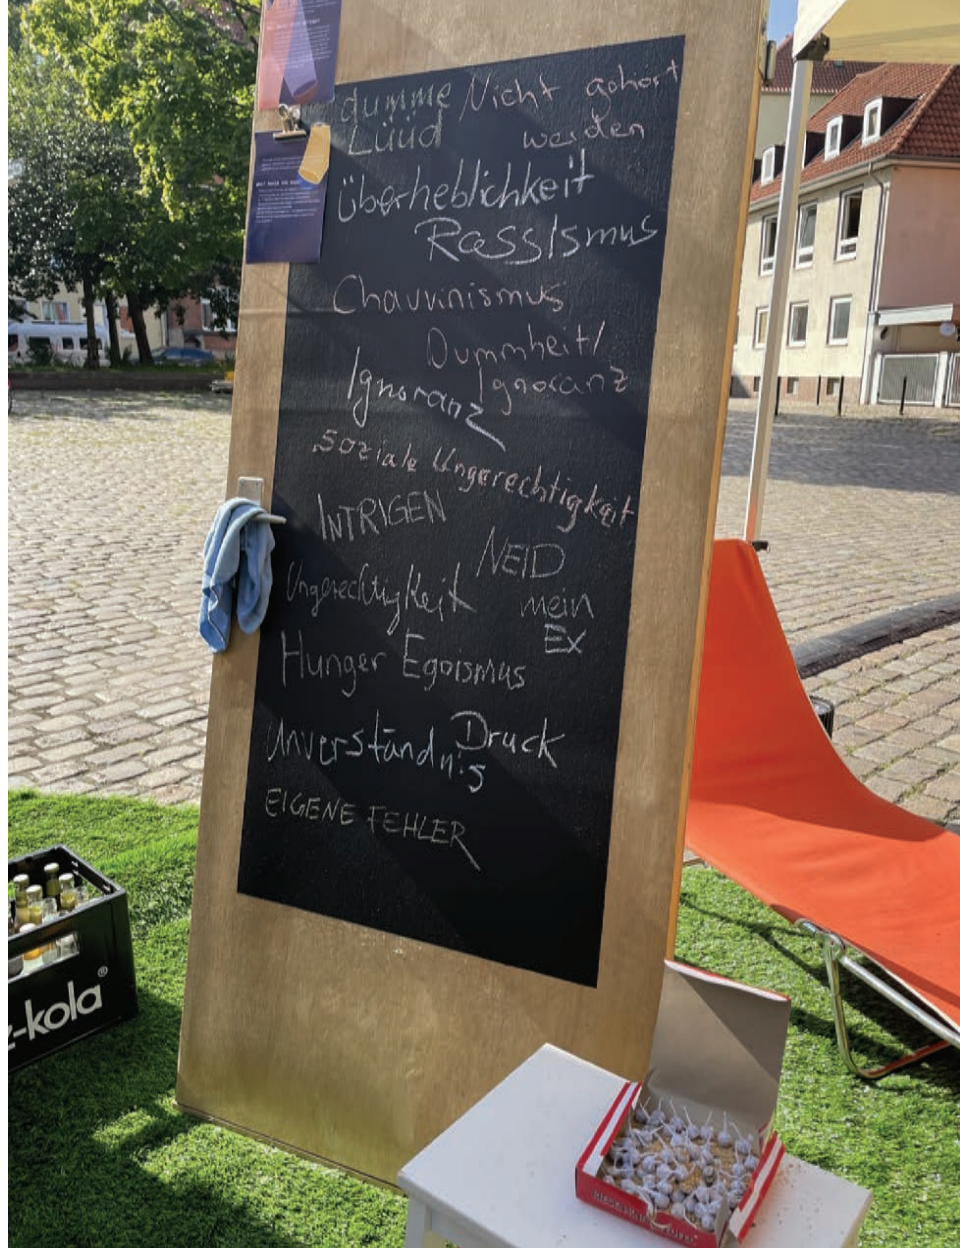 dumme Nicht gehört
Lüüd werden
überheblichkeit
Rassismus
Chauvinismus
Dummheit/
Ignoranz
Ignoranz
soziale Ungerechtigkeit
INTRIGEN
NEID
Ungerechtigkeit mein
EX
Hunger Egoismus
Druck
Unverständnis
EIGENE FEHLER
-kola®